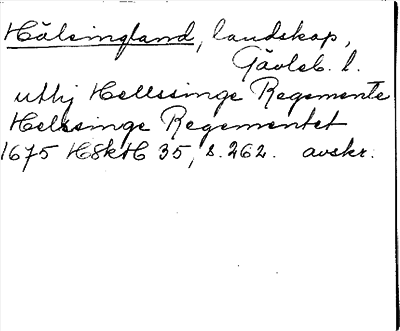 Hälsingland, landskap,
Gävleb. l.
uthj Hellssinge Regemente
Helssinge Regementet
1675 HSkH 35, s. 262. avskr.